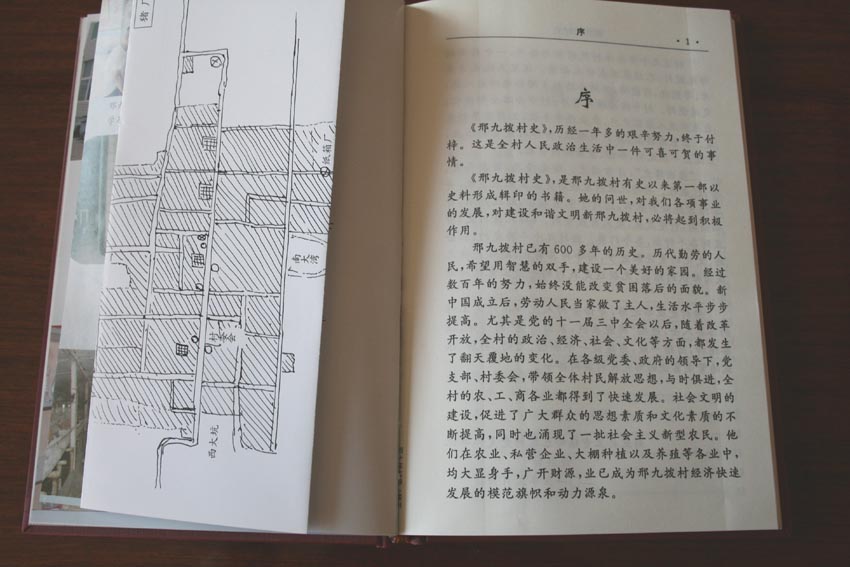 猪厂
纸箱厂
南大湾
村委会
西大坑
序
·1·
序
《邢九拨村史》,历经一年多的艰辛努力,终于付
梓。这是全村人民政治生活中一件可喜可贺的事
情。
《邢九拨村史》,是邢九拨村有史以来第一部以
史料形成辑印的书籍。她的问世,对我们各项事业
的发展,对建设和谐文明新邢九拨村,必将起到积极
作用。
邢九拨村已有600多年的历史。历代勤劳的人
民,希望用智慧的双手,建设一个美好的家园。经过
数百年的努力,始终没能改变贫困落后的面貌。新
中国成立后,劳动人民当家做了主人,生活水平步步
提高。尤其是党的十一届三中全会以后,随着改革
开放,全村的政治、经济、社会、文化等方面,都发生
了翻天覆地的变化。在各级党委、政府的领导下,党
支部、村委会,带领全体村民解放思想,与时俱进,全
村的农、工、商各业都得到了快速发展。社会文明的
建设,促进了广大群众的思想素质和文化素质的不
断提高,同时也涌现了一批社会主义新型农民。他
们在农业、私营企业、大棚种植以及养殖等各业中,
均大显身手,广开财源,业已成为邢九拨村经济快速
发展的模范旗帜和动力源泉。